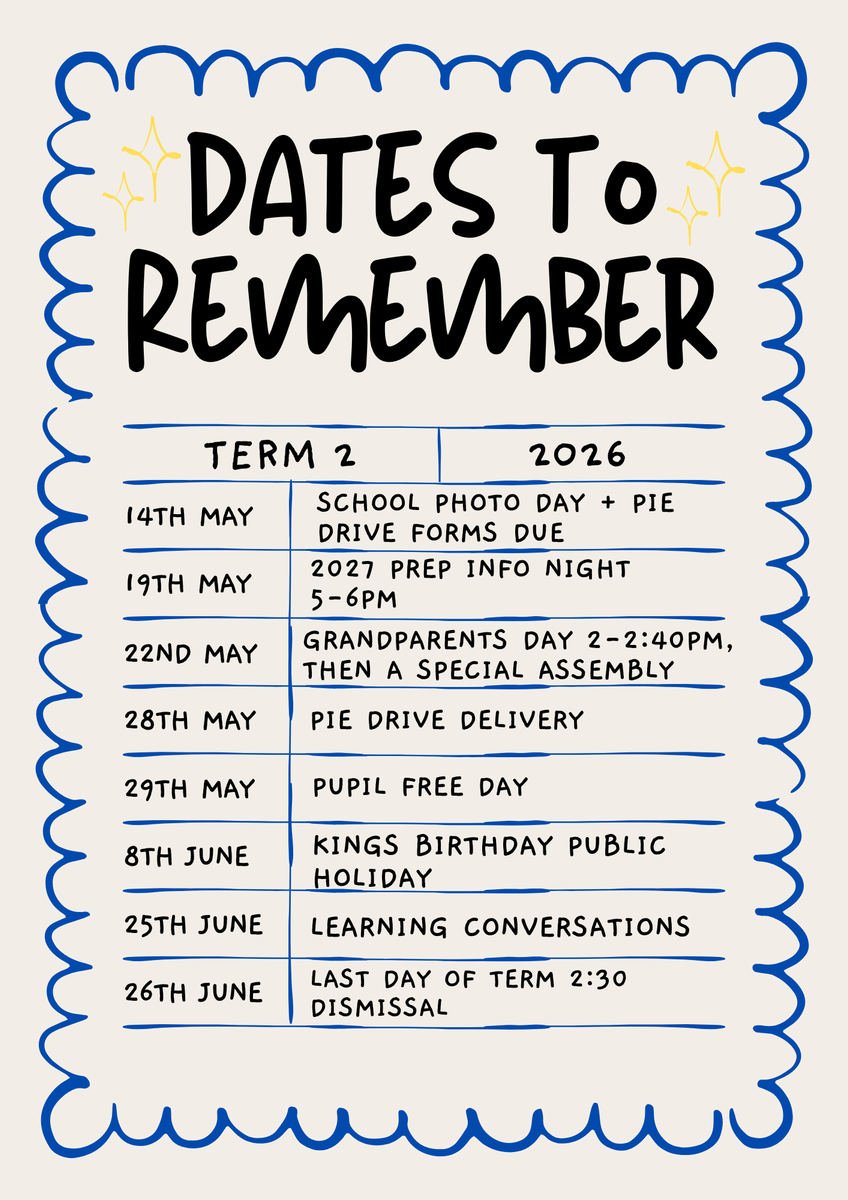 DATES To
REMEMBER
TERM 2 2026
14TH MAY SCHOOL PHOTO DAY + PIE
DRIVE FORMS DUE
19TH MAY 2027 PREP INFO NIGHT
5-6PM
22ND MAY GRANDPARENTS DAY 2-2:40PM,
THEN A SPECIAL ASSEMBLY
28TH MAY PIE DRIVE DELIVERY
29TH MAY PUPIL FREE DAY
8TH JUNE KINGS BIRTHDAY PUBLIC
HOLIDAY
25TH JUNE LEARNING CONVERSATIONS
26TH JUNE LAST DAY OF TERM 2:30
DISMISSAL